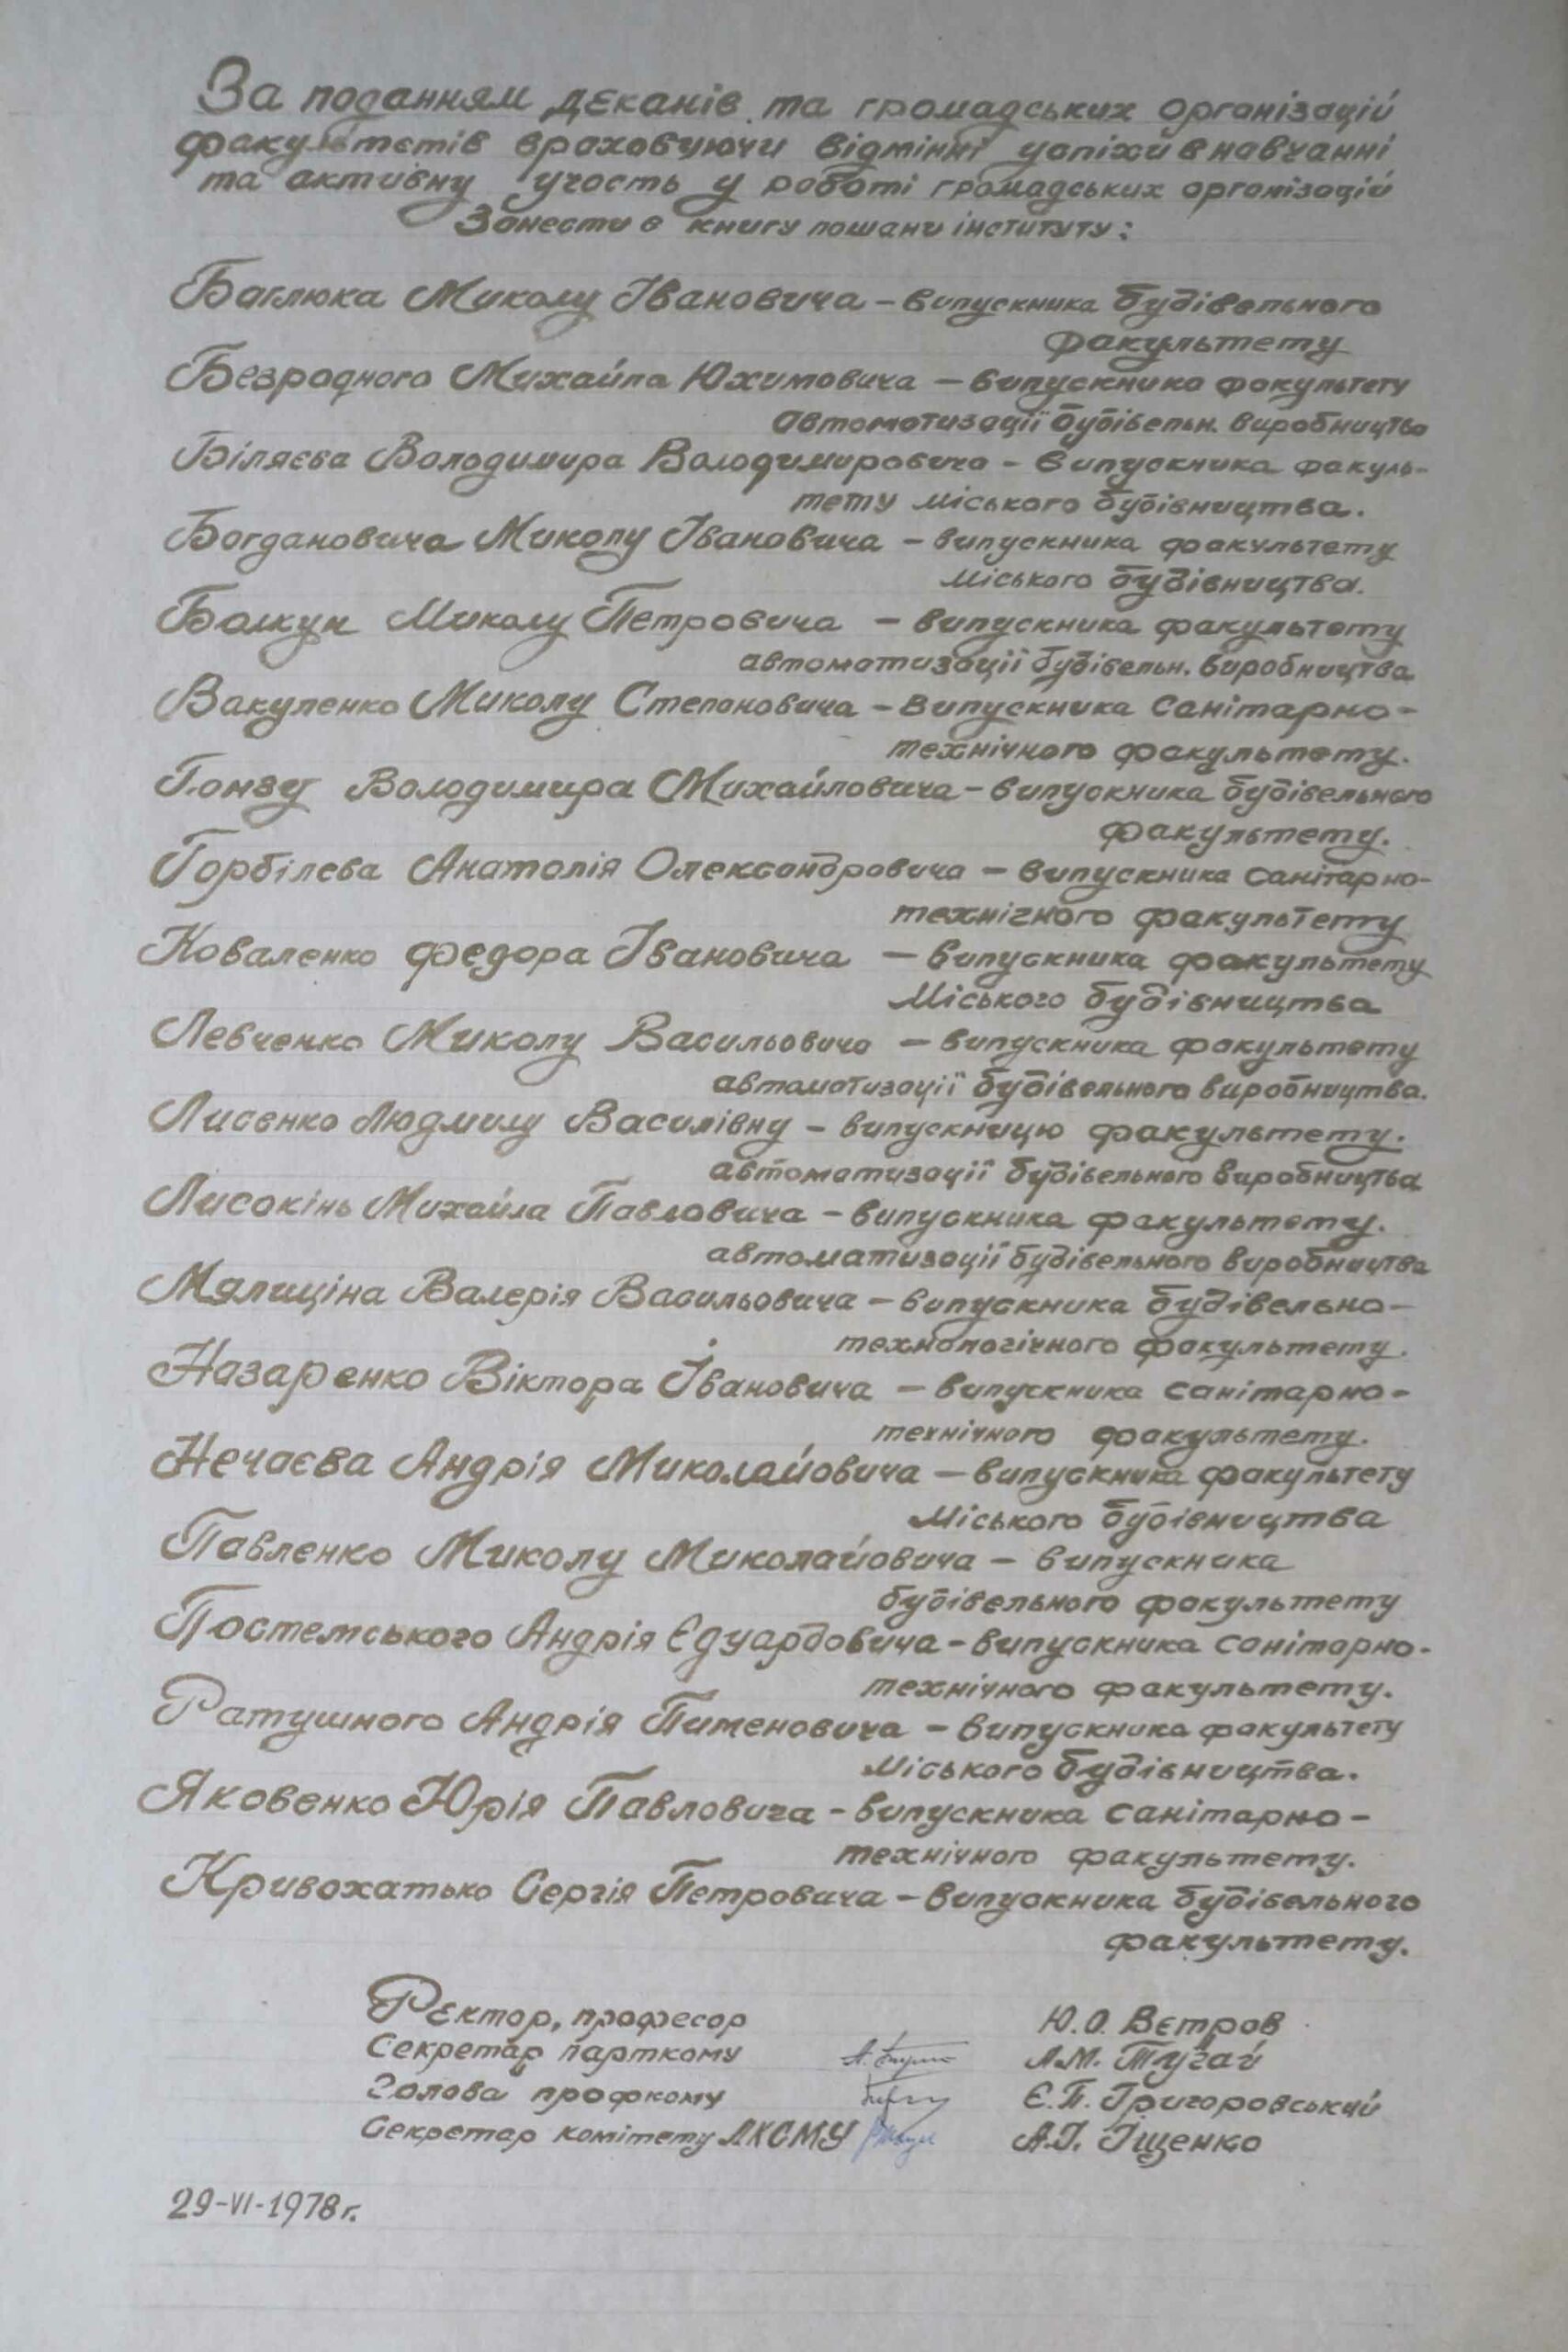 За поданням деканів та громадських організацій
факультетів враховуючи відмінні успіхи в навчанні
та активну участь у роботі громадських організацій
Занести в книгу пошани інституту:
Баглюка Миколу Івановича – випускника будівельного
факультету
Безродного Михайла Юхимовича – випускника факультету
автоматизації будівельн. виробництва
Біляєва Володимира Володимировича – випускника факуль-
тету міського будівництва.
Богдановича Миколу Івановича – випускника факультету
міського будівництва.
Божкун Миколу Петровича – випускника факультету
автоматизації будівельн. виробництва
Вакуленко Миколу Степановича – випускника санітарно-
технічного факультету.
Гонзу Володимира Михайловича – випускника будівельного
факультету.
Горбілєва Анатолія Олександровича – випускника санітарно-
технічного факультету
Коваленко Федора Івановича – випускника факультету
Міського будівництва
Левченко Миколу Васильовича – випускника факультету
автоматизації будівельного виробництва.
Лисенко Людмилу Василівну – випускницю факультету.
автоматизації будівельного виробництва
Лисокінь Михайла Павловича – випускника факультету.
автоматизації будівельного виробництва
Мялиціна Валерія Васильовича – випускника будівельно-
технологічного факультету.
Назаренко Віктора Івановича – випускника санітарно-
технічного факультету.
Нечаєва Андрія Миколайовича – випускника факультету
Міського будівництва
Павленко Миколу Миколайовича – випускника
будівельного факультету
Постемського Андрія Єдуардовича – випускника санітарно-
технічного факультету.
Ратушного Андрія Пименовича – випускника факультету
Міського будівництва.
Яковенко Юрія Павловича – випускника санітарно-
технічного факультету.
Кривохатько Сергія Петровича – випускника будівельного
факультету.
Ректор, професор Ю.О. Вєтров
Секретар парткому А.М. Тугай
Голова профкому Є.П. Григоровський
Секретар комітету ЛКСМУ А.Г. Іщенко
29-VI-1978 г.